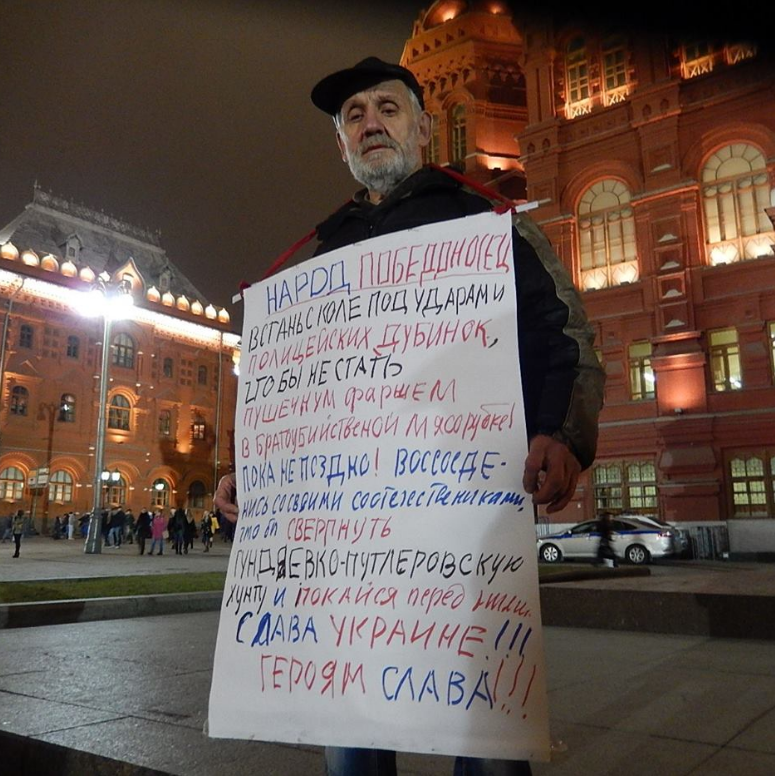 НАРОД ПОБЕДОНОСЕЦ
ВСТАНЬ С КОЛЕ ПОД УДАРАМИ
ПОЛИЦЕЙСКИХ ДУБИНОК,
ЧТО БЫ НЕ СТАТЬ
ПУШЕЧНУМ ФАРШЕМ
В БРАТОУБИЙСТВЕНОЙ МЯСОРУБКЕ!
ПОКА НЕ ПОЗДНО! ВОССОЕДЕ-
НИСЬ СО СВОИМИ СООТЕЧЕСТВЕНИКАМИ,
ЧТО БЫ СВЕРГНУТЬ
ГУНДЯЕВКО-ПУТЛЕРОВСКУЮ
ХУНТУ И ПОКАЙСЯ ПЕРЕД НИМИ.
СЛАВА УКРАИНЕ!!!
ГЕРОЯМ СЛАВА!!!